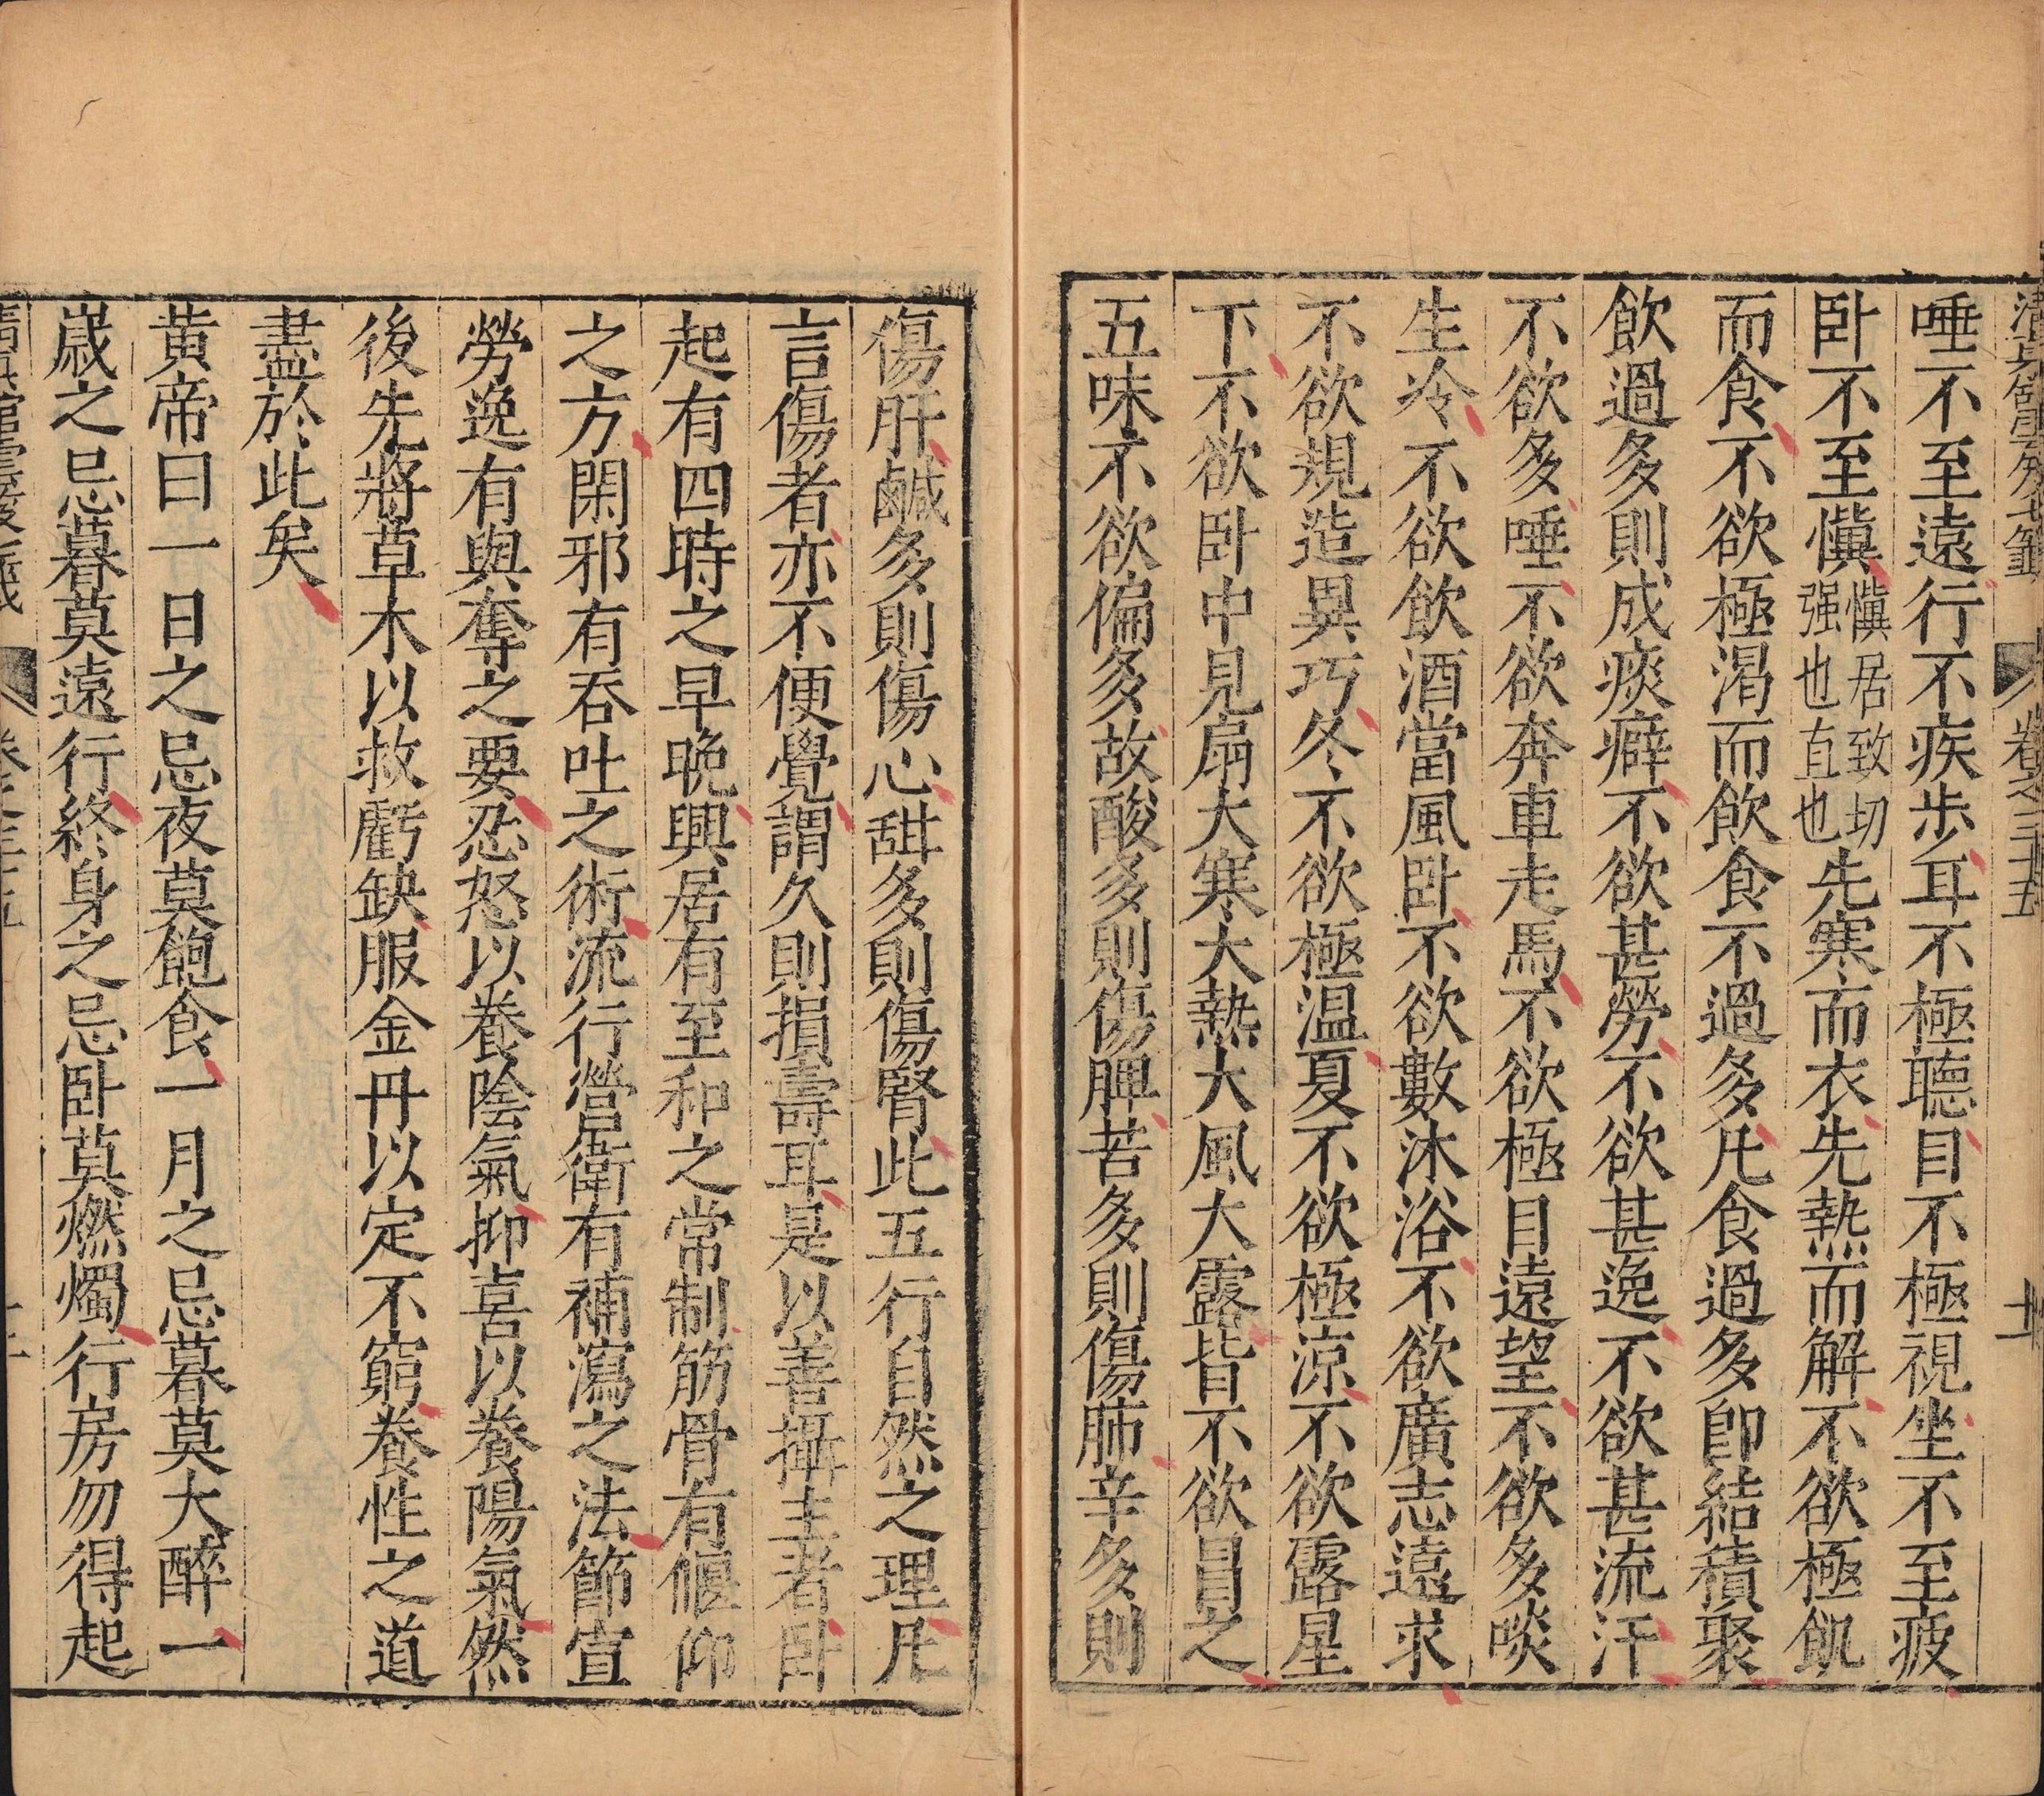 清真館雲笈七籤 卷之三十五 十一
唾不至遠行不疾步耳不極聽目不極視坐不至疲
卧不至懻懻居致切强也直也先寒而衣先熱而解不欲極飢
而食不欲極渴而飲食不過多凡食過多卽結積聚
飲過多則成痰癖不欲甚勞不欲甚逸不欲甚流汗
不欲多唾不欲奔車走馬不欲極目遠望不欲多啖
生冷不欲飲酒當風卧不欲數沐浴不欲廣志遠求
不欲規造異巧冬不欲極温夏不欲極涼不欲露星
下不欲卧中見扇大寒大熱大風大露皆不欲冒之
五味不欲偏多故酸多則傷脾苦多則傷肺辛多則
傷肝鹹多則傷心甜多則傷腎此五行自然之理凡
言傷者亦不便覺謂久則損壽耳是以善攝生者卧
起有四時之早晚興居有至和之常制筋骨有偃仰
之方閑邪有吞吐之術流行營衛有補瀉之法節宣
勞逸有與奪之要忍怒以養陰氣抑喜以養陽氣然
後先將草木以救虧缺服金丹以定不窮養性之道
盡於此矣
黄帝曰一日之忌夜莫飽食一月之忌暮莫大醉一
歲之忌暮莫遠行終身之忌卧莫燃燭行房勿得起